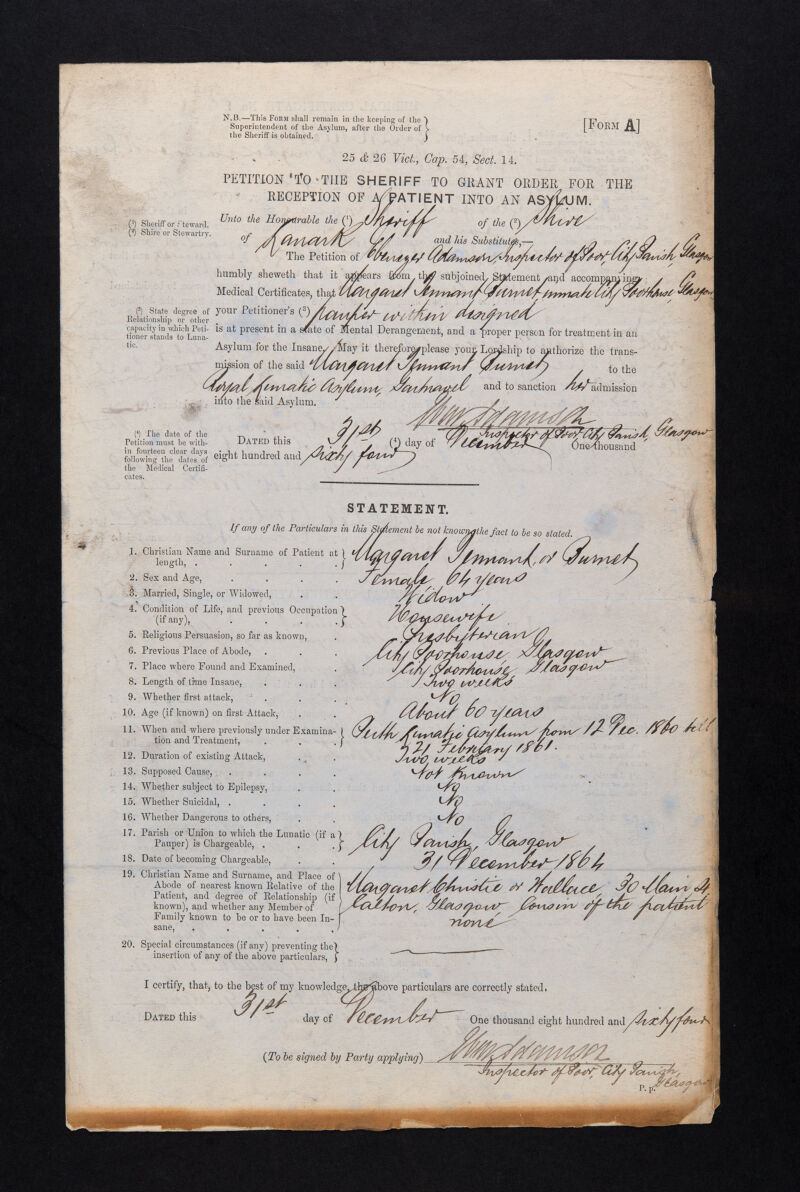 N.B.—This Form shall remain in the keeping of the
Superintendent of the Asylum, after the Order of
the Sheriff is obtained.
[Form A]
25 & 26 Vict., Cap. 54, Sect. 14.
PETITION TO THE SHERIFF TO GRANT ORDER FOR THE
RECEPTION OF A PATIENT INTO AN ASYLUM.
(¹) Sheriff or Steward.
(²) Shire or Stewartry.
Unto the Honourable the (¹) Sheriff of the (²) Shire
of Lanark and his Substitutes,—
The Petition of Ebenezer Adamson, Inspector of Poor City Parish, Glasgow
humbly sheweth that it appears from the subjoined Statement and accompanying
Medical Certificates, that Margaret Tennant or Burnet, inmate City Poorhouse, Glasgow
(³) State degree of
Relationship or other
capacity in which Peti-
tioner stands to Luna-
tic.
your Petitioner's (³) pauper within designed
is at present in a state of Mental Derangement, and a proper person for treatment in an
Asylum for the Insane. May it therefore please your Lordship to authorize the trans-
mission of the said Margaret Tennant or Burnet to the
Royal Lunatic Asylum, Gartnavel and to sanction her admission
into the said Asylum.
Eben Adamson
Inspector of Poor, City Parish, Glasgow
(⁴) The date of the
Petition must be with-
in fourteen clear days
following the dates of
the Medical Certifi-
cates.
Dated this 31st (⁴) day of December One thousand
eight hundred and sixty four
STATEMENT.
If any of the Particulars in this Statement be not known, the fact to be so stated.
1. Christian Name and Surname of Patient at
length, Margaret Tennant, or Burnet
2. Sex and Age, Female 64 years
3. Married, Single, or Widowed, Widow
4. Condition of Life, and previous Occupation
(if any), Housewife
5. Religious Persuasion, so far as known, Presbyterian
6. Previous Place of Abode, City Poorhouse, Glasgow
7. Place where Found and Examined, City Poorhouse, Glasgow
8. Length of time Insane, Two weeks
9. Whether first attack, No
10. Age (if known) on first Attack, About 60 years
11. When and where previously under Examina-
tion and Treatment, Perth Lunatic Asylum from 12 Dec. 1860 till
21 February 1861.
12. Duration of existing Attack, Two weeks
13. Supposed Cause, Not Known
14. Whether subject to Epilepsy, No
15. Whether Suicidal, No
16. Whether Dangerous to others, No
17. Parish or Union to which the Lunatic (if a
Pauper) is Chargeable, City Parish, Glasgow
18. Date of becoming Chargeable, 31 December 1864
19. Christian Name and Surname, and Place of
Abode of nearest known Relative of the
Patient, and degree of Relationship (if
known), and whether any Member of
Family known to be or to have been In-
sane, Margaret Christie or Wallace, 30 Main St.
Calton, Glasgow Cousin of the patient
none
20. Special circumstances (if any) preventing the
insertion of any of the above particulars,
I certify, that, to the best of my knowledge, the above particulars are correctly stated.
Dated this 31st day of December One thousand eight hundred and sixty four
(To be signed by Party applying) Eben Adamson
Inspector of Poor, City Parish,
Glasgow
P. p.